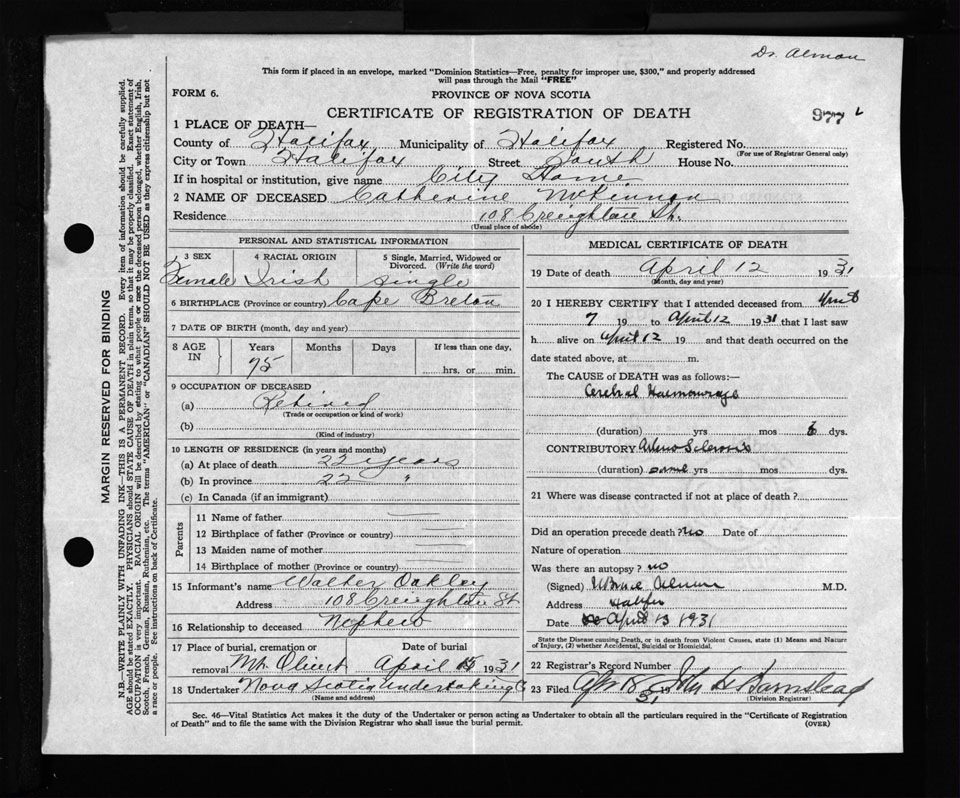 Dr. Almon
This form if placed in an envelope, marked "Dominion Statistics—Free, penalty for improper use, $300," and properly addressed
will pass through the Mail "FREE"
FORM 6.
PROVINCE OF NOVA SCOTIA
CERTIFICATE OF REGISTRATION OF DEATH
1 PLACE OF DEATH—
County of Halifax Municipality of Halifax Registered No.
(For use of Registrar General only)
City or Town Halifax Street South House No.
If in hospital or institution, give name City Home
2 NAME OF DECEASED Catherine McKinnon
Residence 108 Creighton St.
(Usual place of abode)
PERSONAL AND STATISTICAL INFORMATION
3 SEX 4 RACIAL ORIGIN 5 Single, Married, Widowed or
Divorced. (Write the word)
Female Irish Single
6 BIRTHPLACE (Province or country) Cape Breton
7 DATE OF BIRTH (month, day and year)
8 AGE IN Years Months Days If less than one day.
75 hrs. or min.
9 OCCUPATION OF DECEASED
(a) Retired
(Trade or occupation or kind of work)
(b)
(Kind of industry)
10 LENGTH OF RESIDENCE (in years and months)
(a) At place of death 22 years
(b) In province 22 "
(c) In Canada (if an immigrant)
Parents
11 Name of father
12 Birthplace of father (Province or country)
13 Maiden name of mother
14 Birthplace of mother (Province or country)
15 Informant's name Walter Oakley
Address 108 Creighton St
16 Relationship to deceased Nephew
17 Place of burial, cremation or Date of burial
removal Mt. Olivet April 15 1931
18 Undertaker Nova Scotia Undertaking Co
(Name and address)
MEDICAL CERTIFICATE OF DEATH
19 Date of death April 12 1931
(Month, day and year)
20 I HEREBY CERTIFY that I attended deceased from
7 19 to April 12 1931 that I last saw
h alive on April 12 19 and that death occurred on the
date stated above, at m.
The CAUSE of DEATH was as follows:—
Cerebral Haemorrage
(duration) yrs mos dys.
CONTRIBUTORY Arterio Sclerosis
(duration) some yrs mos dys.
21 Where was disease contracted if not at place of death?
Did an operation precede death? no Date of
Nature of operation
Was there an autopsy? no
(Signed) Almon M.D.
Address Halifax
Date April 13 1931
State the Disease causing Death, or in death from Violent Causes, state (1) Means and Nature
of Injury, (2) whether Accidental, Suicidal or Homicidal.
22 Registrar's Record Number
23 Filed Apr 18 1931 John H Barnstead
(Division Registrar)
Sec. 46—Vital Statistics Act makes it the duty of the Undertaker or person acting as Undertaker to obtain all the particulars required in the "Certificate of Registration
of Death" and to file the same with the Division Registrar who shall issue the burial permit.
(OVER)
MARGIN RESERVED FOR BINDING
N.B.—WRITE PLAINLY WITH UNFADING INK—THIS IS A PERMANENT RECORD. Every item of information should be carefully supplied.
AGE should be stated EXACTLY. PHYSICIANS should STATE CAUSE OF DEATH in plain terms, so that it may be properly classified. Exact statement of
OCCUPATION is very important. RACIAL ORIGIN will be described by stating to what people or race the deceased person belonged, whether English, Irish,
Scotch, French, German, Russian, Ruthenian, etc. The terms "AMERICAN" or "CANADIAN" SHOULD NOT BE USED as they express citizenship but not
a race or people. See instructions on back of Certificate.